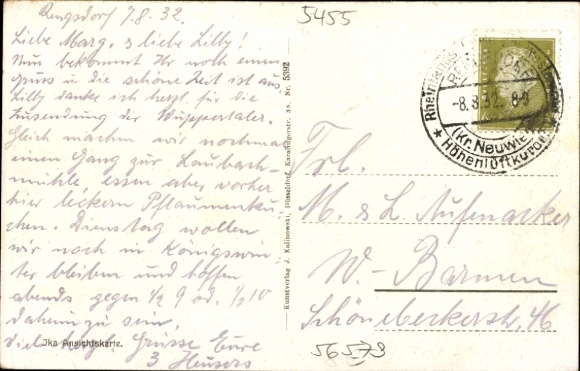 Rengsdorf 7.8.32.
Liebe Marg. & liebe Lilly!
Nun bekommt Ihr noch einen
Gruss u die schöne Zeit ist aus.
Lilly danke ich herzl. für die
Zusendung der Wuppertaler.
Gleich machen wir nochmal
einen Gang zur Laubach-
mühle, essen aber vorher
hier leckern Pflaumenku-
chen. Dienstag wollen
wir noch in Königswin-
ter bleiben und hoffen
abends gegen ½ 9 od. ½ 10
daheim zu sein.
Viel Grüsse Eure
3 Heusers
Jka Ansichtskarte.
Kunstverlag J. Kalinowski, Düsseldorf, Nr. 5392
5455
-8.8.32. 8-9
(Kr. Neuwied)
* Höhenluftkurort
Frl.
M. & L. Aufenacker
W.- Barmen
Schönebeckerstr. 46
56573